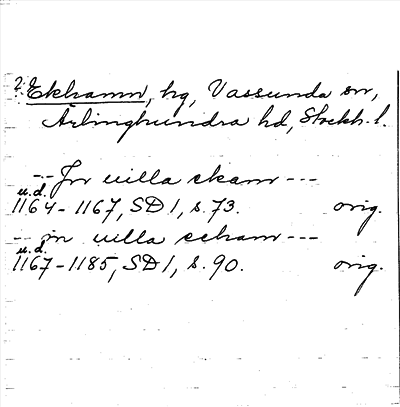 ? Ekhamn, hg, Vassunda sn,
Ärlinghundra hd, Stockh. l.
-- Jn uilla ekam ---
u.d.
1164-1167, SD 1, s. 73. orig.
-- jn uilla echam ---
u.d.
1167-1185, SD 1, s. 90. orig.